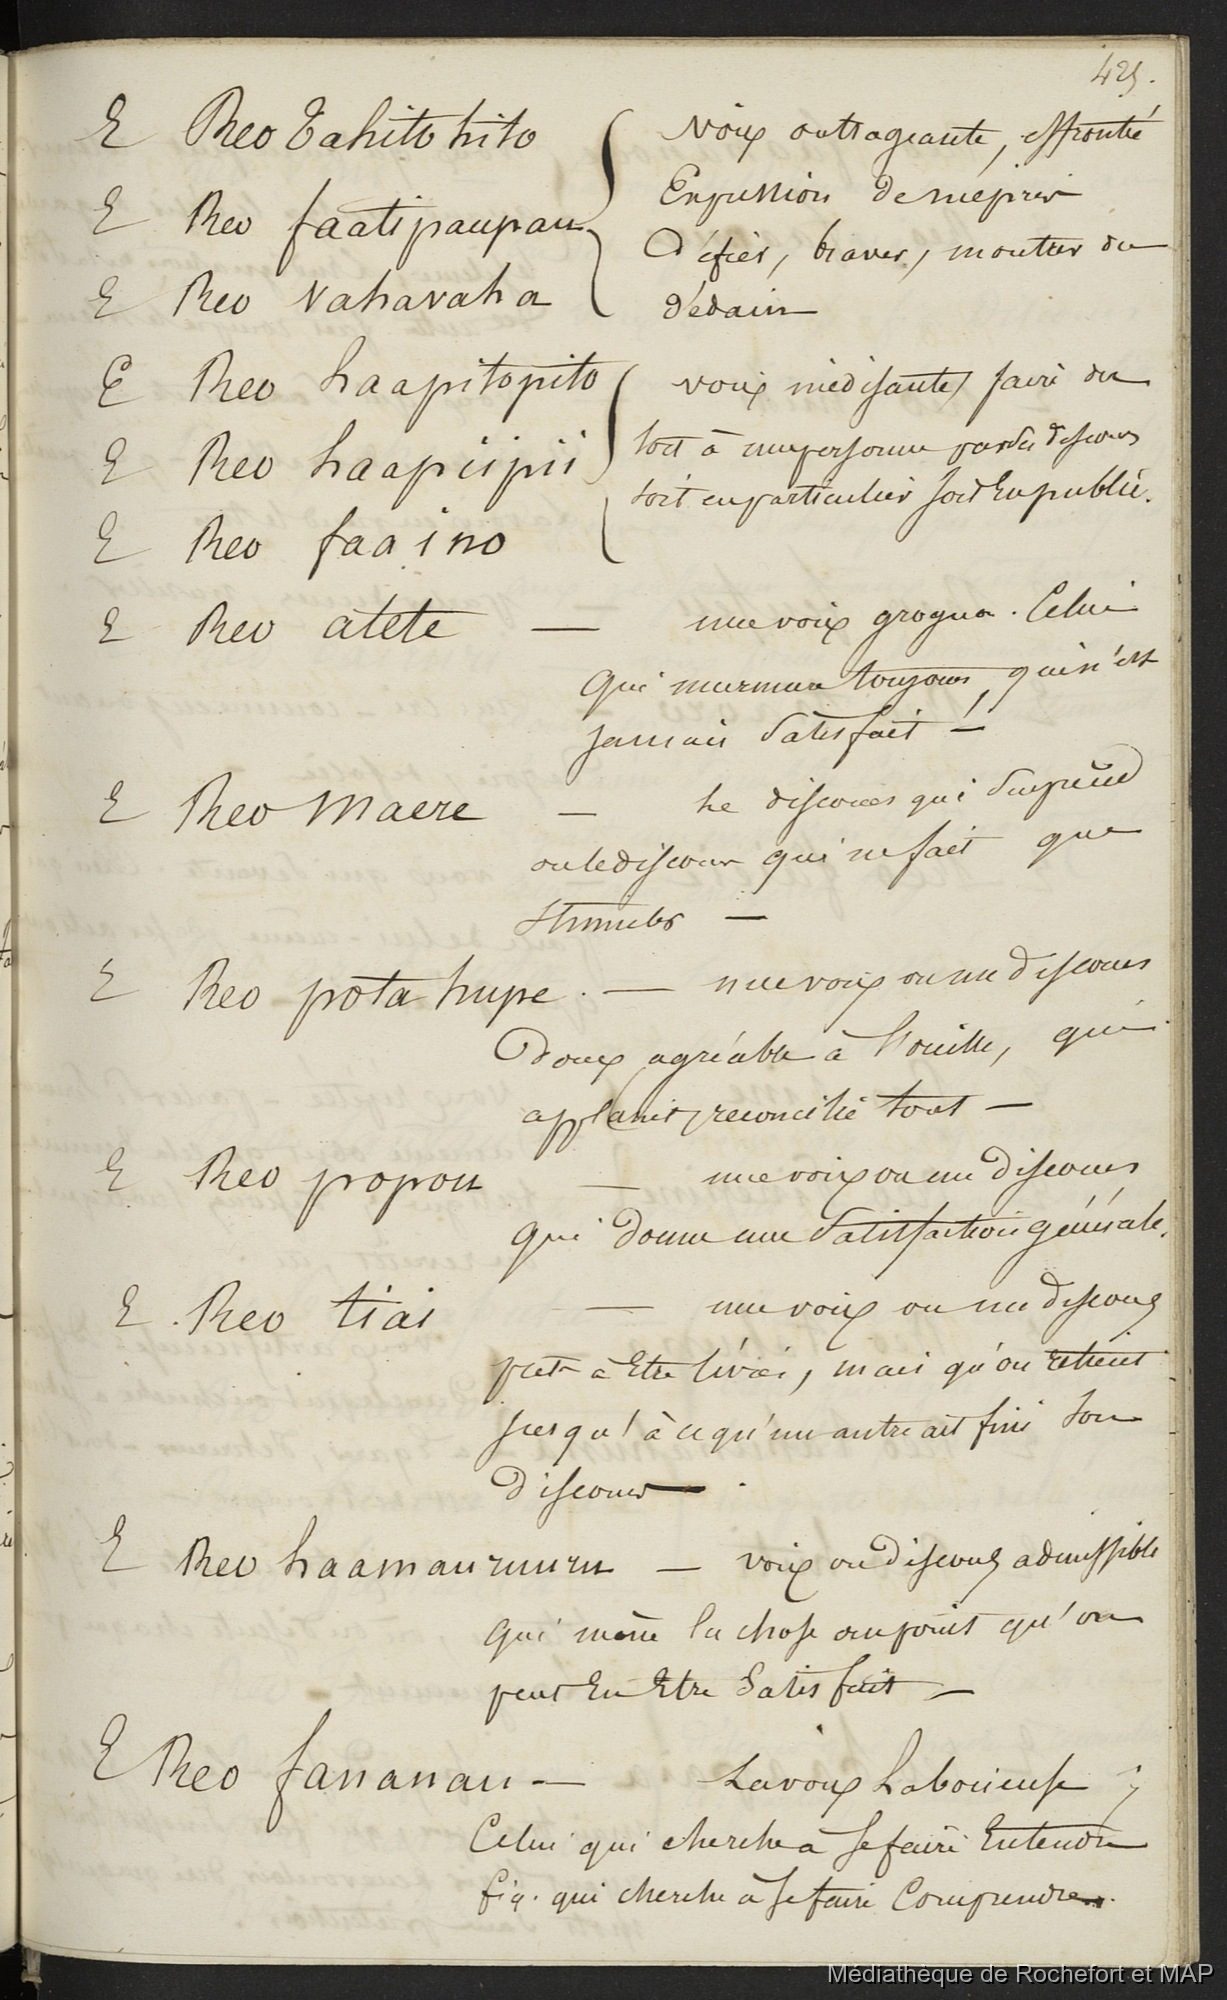 425.
E Reo Tahitohito
E Reo faatipaupau
E Reo vahavaha
Voix outrageante, effrontée
Expression de mépris
Défier, braver, montrer du
dédain
E Reo haapitopito
E Reo haapiipii
E Reo faaino
voix médisante, faire du
tort à une personne par des discours
soit en particulier soit En public.
E Reo atete — une voix grogna. Celui
qui murmure toujours, qui n'est
jamais satisfait —
E Reo Maere — Le discours qui surprend
ou le discour qui ne fait que
stimuler —
E Reo potahupe. — une voix ou un discours
doux agréable à l'oreille, qui
applanit, reconcilie tout —
E Reo popou — une voix ou un discours
qui donne une satisfaction générale.
E Reo tiai — une voix ou un discours
pret à Etre livrée, mais qu'on retient
jusqu'à ce qu'un autre ait fini son
discours — .
E Reo haamauruuru — voix ou discours admissible
qui mène la chose au point qu'on
peut En Etre Satisfait —
E Reo fananau — La voix Laborieuse
Celui qui cherche à se faire Entendre
fig. qui cherche à se faire Comprendre.
Médiathèque de Rochefort et MAP